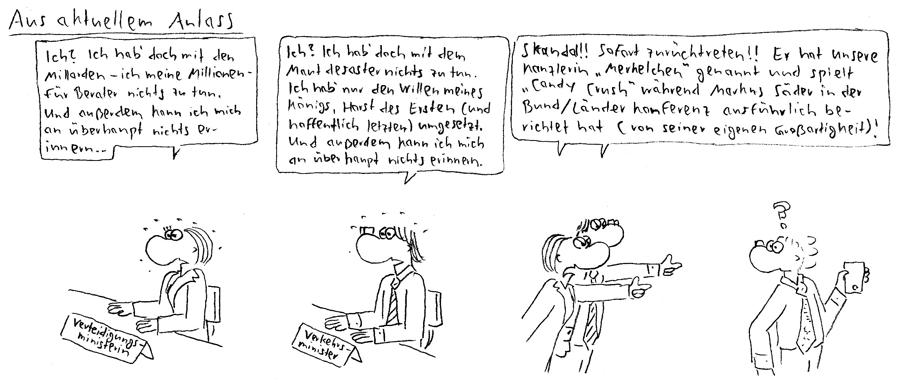 Aus aktuellem Anlass
Ich? Ich hab' doch mit den
Milliarden - ich meine Millionen -
für Berater nichts zu tun.
Und außerdem kann ich mich
an überhaupt nichts er-
innern...
Ich? Ich hab' doch mit dem
Mautdesaster nichts zu tun.
Ich hab' nur den Willen meines
Königs, Horst des Ersten (und
hoffentlich letzten) umgesetzt.
Und außerdem kann ich mich
an überhaupt nichts erinnern.
Skandal!! Sofort zurücktreten!! Er hat unsere
Kanzlerin „Merkelchen" genannt und spielt
„Candy Crush" während Markus Söder in der
Bund/Länder Konferenz ausführlich be-
richtet hat (von seiner eigenen Großartigkeit)!
?
Verteidigungs-
ministerin
Verkehrs-
minister